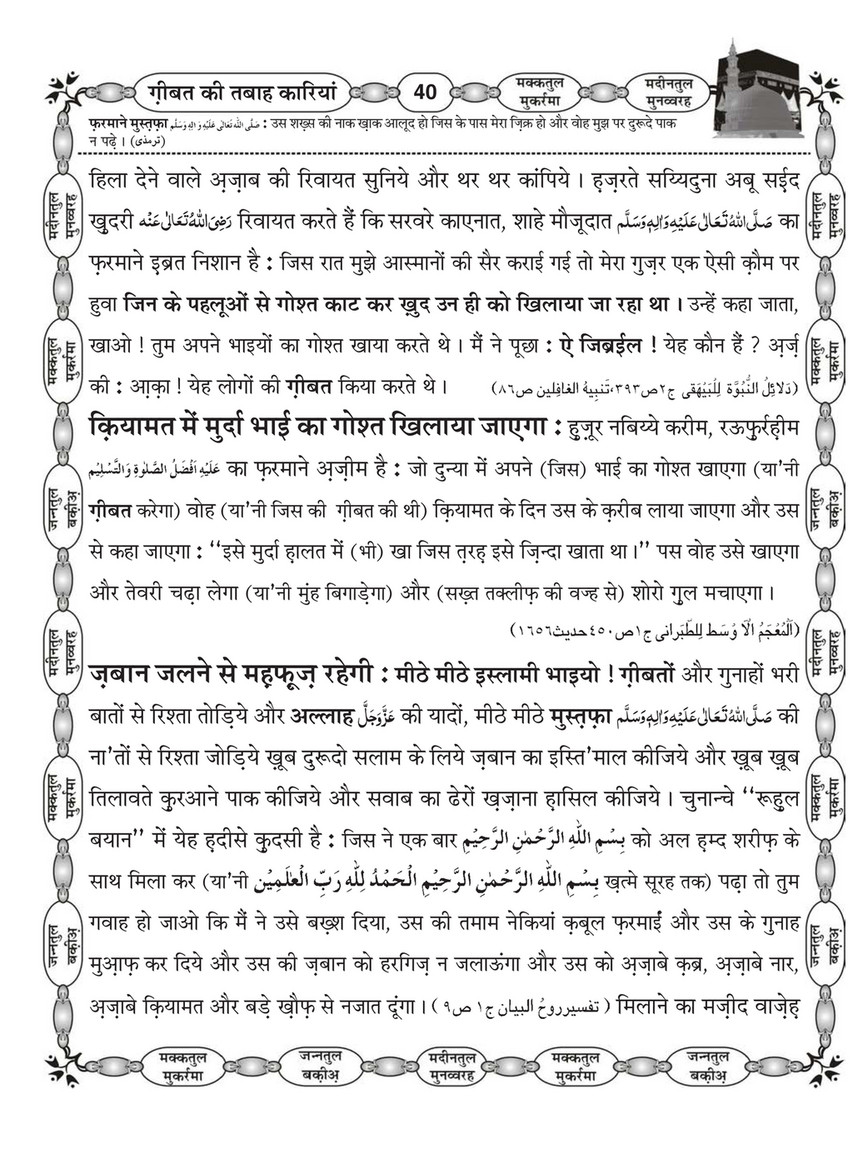 ग़ीबत की तबाह कारियां
40
मक्कतुल
मुकर्रमा
मदीनतुल
मुनव्वरह
फ़रमाने मुस्त़फ़ा صَلَّى اللّٰه تَعَالٰى عَلَيْهِ وَاٰلِهٖ وَسَلَّم : उस शख़्स की नाक ख़ाक आलूद हो जिस के पास मेरा ज़िक्र हो और वोह मुझ पर दुरूदे पाक
न पढ़े । (ترمذی)
हिला देने वाले अ़ज़ाब की रिवायत सुनिये और थर थर कांपिये । ह़ज़रते सय्यिदुना अबू सई़द
खुदरी رَضِىَ اللّٰهُ تَعَالٰى عَنْه रिवायत करते हैं कि सरवरे काएनात, शाहे मौजूदात صَلَّى اللّٰهُ تَعَالٰى عَلَيْهِ وَاٰلِهٖ وَسَلَّم का
फ़रमाने इ़ब्रत निशान है : जिस रात मुझे आस्मानों की सैर कराई गई तो मेरा गुज़र एक ऐसी क़ौम पर
हुवा जिन के पहलूओं से गोश्त काट कर ख़ुद उन ही को खिलाया जा रहा था । उन्हें कहा जाता,
खाओ ! तुम अपने भाइयों का गोश्त खाया करते थे । मैं ने पूछा : ऐ जिब्रईल ! येह कौन हैं ? अ़र्ज़
की : आक़ा ! येह लोगों की ग़ीबत किया करते थे । (دَلائِلُ النُّبُوَّة لِلْبَيْهَقى ج٢ص٣٩٣،تَنبِيهُ الغافِلين ص٨٦)
क़ियामत में मुर्दा भाई का गोश्त खिलाया जाएगा : हुज़ूर नबिय्ये करीम, रऊफ़ुर्रह़ीम
عَلَيْهِ اَفْضَلُ الصَّلٰوةِ وَالتَّسْلِيْم का फ़रमाने अ़ज़ीम है : जो दुन्या में अपने (जिस) भाई का गोश्त खाएगा (या'नी
ग़ीबत करेगा) वोह (या'नी जिस की ग़ीबत की थी) क़ियामत के दिन उस के क़रीब लाया जाएगा और उस
से कहा जाएगा : ‘‘इसे मुर्दा ह़ालत में (भी) खा जिस त़रह़ इसे ज़िन्दा खाता था ।’’ पस वोह उसे खाएगा
और तेवरी चढ़ा लेगा (या'नी मुंह बिगाड़ेगा) और (सख़्त तक्लीफ़ की वज्ह से) शोरो ग़ुल मचाएगा ।
(اَلْمُعْجَمُ الْاَ وْسَط لِلطَّبَرانى ج١ص٤٥٠حديث١٦٥٦)
ज़बान जलने से मह़फ़ूज़ रहेगी : मीठे मीठे इस्लामी भाइयो ! ग़ीबतों और गुनाहों भरी
बातों से रिश्ता तोड़िये और अल्लाह عَزَّوَجَلَّ की यादों, मीठे मीठे मुस्त़फ़ा صَلَّى اللّٰهُ تَعَالٰى عَلَيْهِ وَاٰلِهٖ وَسَلَّم की
ना'तों से रिश्ता जोड़िये ख़ूब दुरूदो सलाम के लिये ज़बान का इस्ति'माल कीजिये और ख़ूब ख़ूब
तिलावते क़ुरआने पाक कीजिये और सवाब का ढेरों ख़ज़ाना ह़ासिल कीजिये । चुनान्चे ‘‘रूहुल
बयान’’ में येह ह़दीसे क़ुदसी है : जिस ने एक बार بِسْمِ اللّٰهِ الرَّحْمٰنِ الرَّحِيْمِ को अल ह़म्द शरीफ़ के
साथ मिला कर (या'नी بِسْمِ اللّٰهِ الرَّحْمٰنِ الرَّحِيْمِ الْحَمْدُ لِلّٰهِ رَبِّ الْعٰلَمِيْن ख़त्मे सूरह तक) पढ़ा तो तुम
गवाह हो जाओ कि मैं ने उसे बख़्श दिया, उस की तमाम नेकियां क़बूल फ़रमाईं और उस के गुनाह
मुआ़फ़ कर दिये और उस की ज़बान को हरगिज़ न जलाऊंगा और उस को अ़ज़ाबे क़ब्र, अ़ज़ाबे नार,
अ़ज़ाबे क़ियामत और बड़े ख़ौफ़ से नजात दूंगा । (تفسیرروحُ البیان ج١ ص٩) मिलाने का मज़ीद वाज़ेह़
मदीनतुल
मुनव्वरह
मक्कतुल
मुकर्रमा
जन्नतुल
बक़ीअ़
मदीनतुल
मुनव्वरह
मक्कतुल
मुकर्रमा
जन्नतुल
बक़ीअ़
मदीनतुल
मुनव्वरह
मक्कतुल
मुकर्रमा
जन्नतुल
बक़ीअ़
मदीनतुल
मुनव्वरह
मक्कतुल
मुकर्रमा
जन्नतुल
बक़ीअ़
मक्कतुल
मुकर्रमा
जन्नतुल
बक़ीअ़
मदीनतुल
मुनव्वरह
मक्कतुल
मुकर्रमा
जन्नतुल
बक़ीअ़